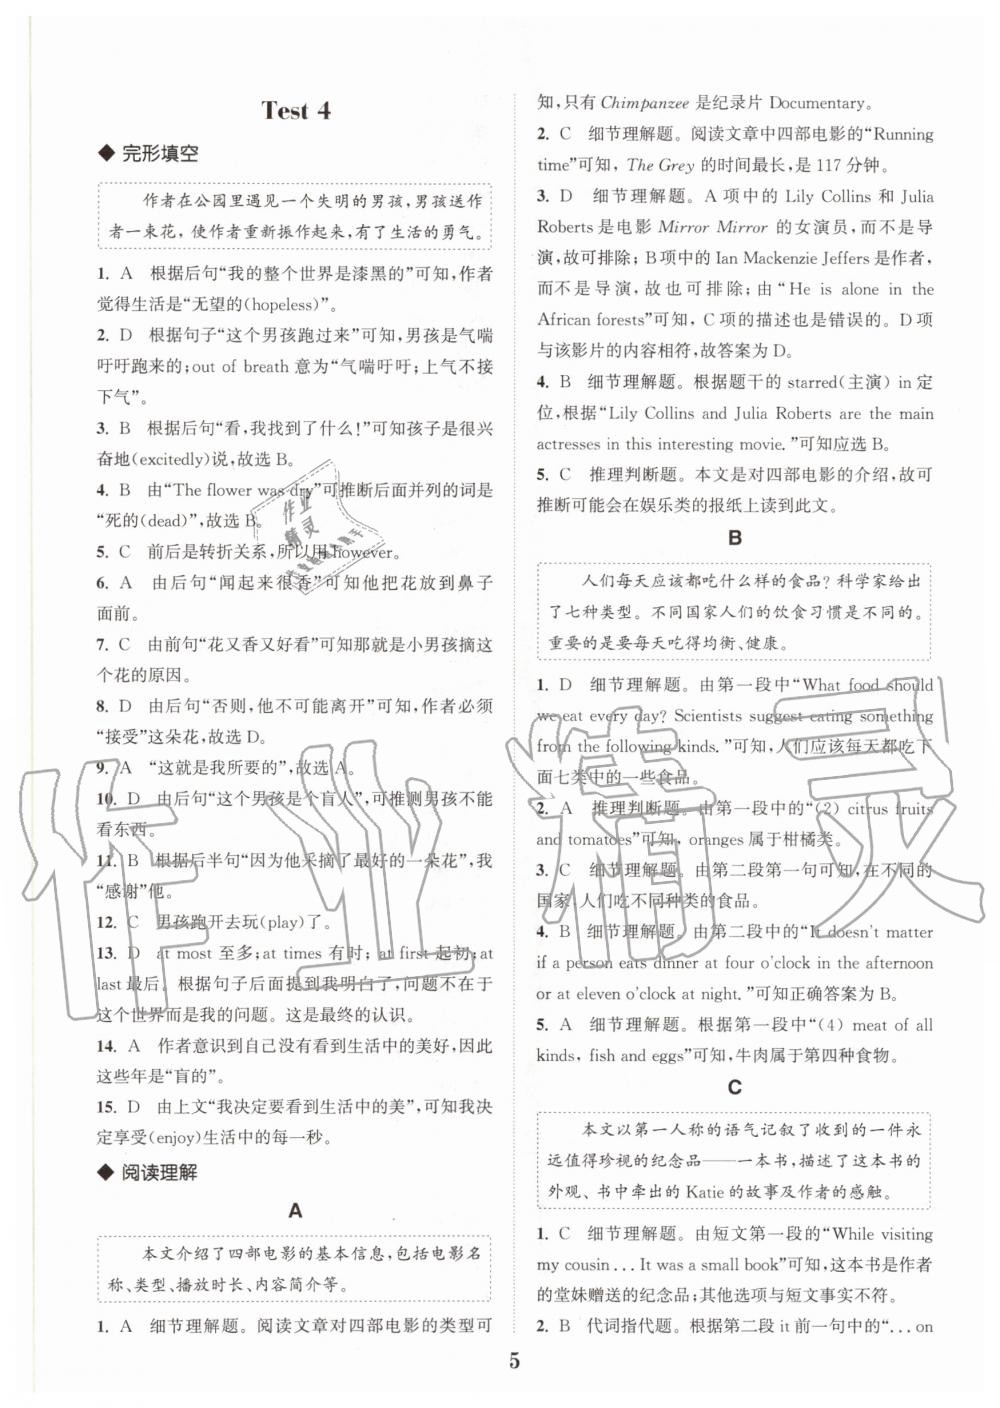 Test 4
◆ 完形填空
作者在公园里遇见一个失明的男孩,男孩送作
者一束花, 使作者重新振作起来,有了生活的勇气。
1. A 根据后句“我的整个世界是漆黑的”可知,作者
觉得生活是“无望的(hopeless)”。
2. D 根据句子“这个男孩跑过来”可知,男孩是气喘
吁吁跑来的;out of breath 意为“气喘吁吁;上气不接
下气”。
3. B 根据后句“看,我找到了什么!”可知孩子是很兴
奋地(excitedly)说,故选 B。
4. B 由“The flower was dry”可推断后面并列的词是
“死的(dead)”,故选 B。
5. C 前后是转折关系,所以用 however。
6. A 由后句“闻起来很香”可知他把花放到鼻子
面前。
7. C 由前句“花又香又好看”可知那就是小男孩摘这
个花的原因。
8. D 由后句“否则,他不可能离开”可知,作者必须
“接受”这朵花,故选 D。
9. A “这就是我所要的”,故选 A。
10. D 由后句“这个男孩是个盲人”,可推测男孩不能
看东西。
11. B 根据后半句“因为他采摘了最好的一朵花”,我
“感谢”他。
12. C 男孩跑开去玩(play)了。
13. D at most 至多;at times 有时; at first 起初;at
last 最后。根据句子后面提到我明白了,问题不在于
这个世界而是我的问题。这是最终的认识。
14. A 作者意识到自己没有看到生活中的美好,因此
这些年是“盲的”。
15. D 由上文“我决定要看到生活中的美”,可知我决
定享受(enjoy)生活中的每一秒。
◆ 阅读理解
A
本文介绍了四部电影的基本信息,包括电影名
称、类型、播放时长、内容简介等。
1. A 细节理解题。阅读文章对四部电影的类型可
知,只有 Chimpanzee 是纪录片 Documentary。
2. C 细节理解题。阅读文章中四部电影的“Running
time”可知, The Grey 的时间最长,是 117 分钟。
3. D 细节理解题。A 项中的 Lily Collins 和 Julia
Roberts 是电影 Mirror Mirror 的女演员,而不是导
演,故可排除; B 项中的 Ian Mackenzie Jeffers 是作者,
而不是导演,故也可排除;由“He is alone in the
African forests”可知, C 项的描述也是错误的。D 项
与该影片的内容相符,故答案为 D。
4. B 细节理解题。根据题干的 starred(主演) in 定
位,根据“Lily Collins and Julia Roberts are the main
actresses in this interesting movie. ”可知应选 B。
5. C 推理判断题。本文是对四部电影的介绍,故可
推断可能会在娱乐类的报纸上读到此文。
B
人们每天应该都吃什么样的食品? 科学家给出
了七种类型。不同国家人们的饮食习惯是不同的。
重要的是要每天吃得均衡、健康。
1. D 细节理解题。由第一段中“What food should
we eat every day? Scientists suggest eating something
from the following kinds. ”可知,人们应该每天都吃下
面七类中的一些食品。
2. A 推理判断题。由第一段中的“(2) citrus fruits
and tomatoes”可知, oranges 属于柑橘类。
3. C 细节理解题。由第二段第一句可知,在不同的
国家,人们吃不同种类的食品。
4. B 细节理解题。由第二段中的“It doesn't matter
if a person eats dinner at four o'clock in the afternoon
or at eleven o'clock at night. ”可知正确答案为 B。
5. A 细节理解题。根据第一段中“(4) meat of all
kinds, fish and eggs”可知,牛肉属于第四种食物。
C
本文以第一人称的语气记叙了收到的一件永
远值得珍视的纪念品——一本书,描述了这本书的
外观、书中牵出的 Katie 的故事及作者的感触。
1. C 细节理解题。由短文第一段的“While visiting
my cousin . . . It was a small book”可知,这本书是作者
的堂妹赠送的纪念品;其他选项与短文事实不符。
2. B 代词指代题。根据第二段 it 前一句中的“. . . on
5
作业精灵
作业
精灵